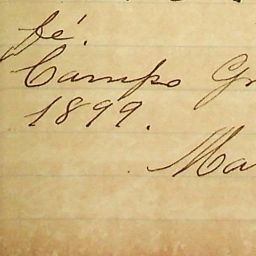 fé.
Campo Gr
1899.
Ma